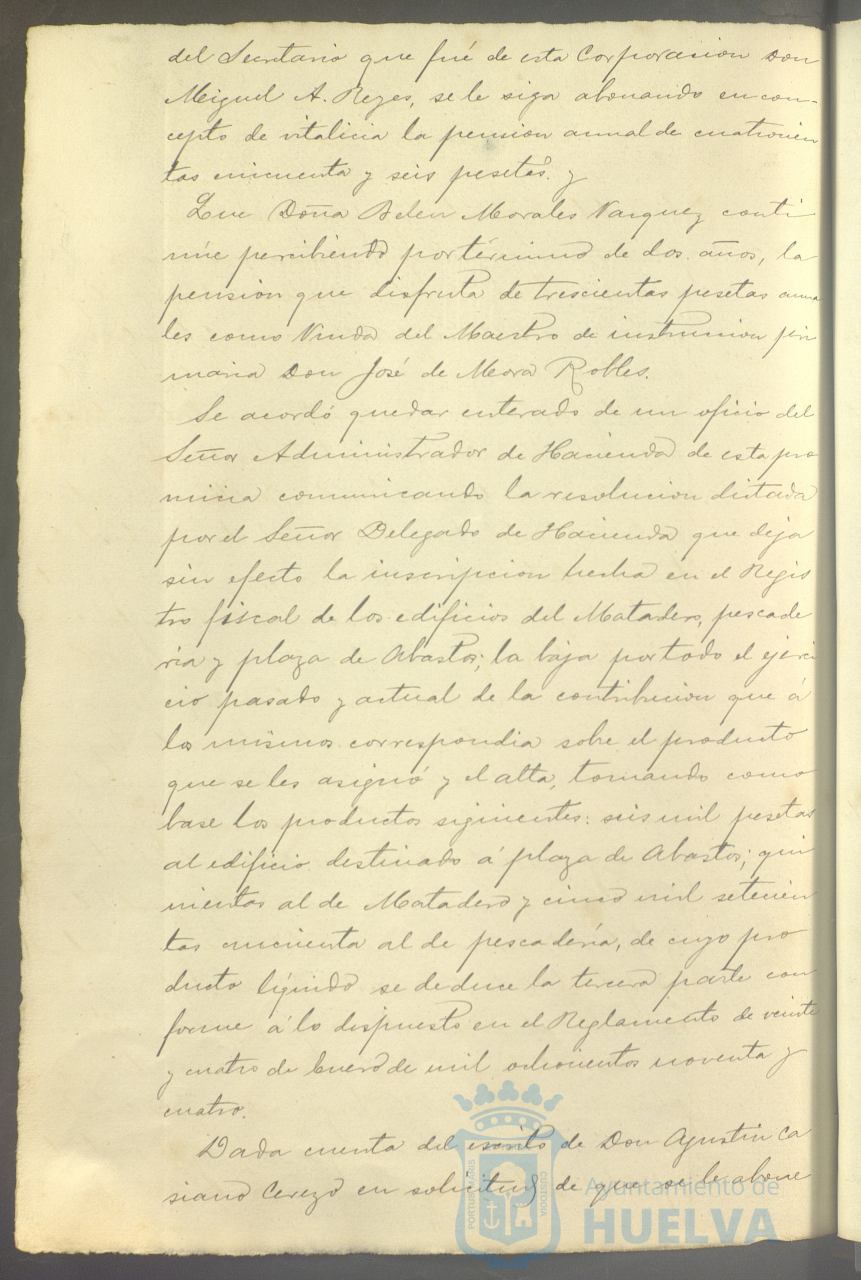 del Secretario que fué de esta Corporacion Don
Miguel A. Reyes, se le siga abonando en con-
cepto de vitalicia la pension anual de cuatrocien
tas cincuenta y seis pesetas. y
Que Doña Belen Morales Vazquez conti
núe percibiendo por término de dos años, la
pension que disfruta de trescientas pesetas anua
les como Viuda del Maestro de instruccion pri
maria Don José de Mora Robles.
Se acordó quedar enterado de un oficio del
Señor Administrador de Hacienda de esta pro
vincia comunicando la resolucion dictada
por el Señor Delegado de Hacienda que deja
sin efecto la inscripcion hecha en el Regis
tro fiscal de los edificios del Matadero, pescade
ria y plaza de Abastos; la baja por todo el ejerci
cio pasado y actual de la contribucion que á
los mismos correspondia sobre el producto
que se les asignó y el alta, tomando como
base los productos siguientes: seis mil pesetas
al edificio destinado á plaza de Abastos; qui
nientas al de Matadero y cinco mil setecien
tas cincuenta al de pescadería, de cuyo pro
ducto líquido se deduce la tercera parte con
forme á lo dispuesto en el Reglamento de veinte
y cuatro de Enero de mil ochocientos noventa y
cuatro.
Dada cuenta del escrito de Don Agustin Ca
siano Cerezo en solicitud de que se le abone
Ayuntamiento de
HUELVA
PORTUS MARIS
CUSTODIA